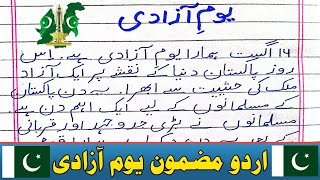 یومِ آزادی
۱۴ اگست ہمارا یومِ آزادی ہے۔ اس
روز پاکستان دنیا کے نقشہ پر ایک آزاد
ملک کی حیثیت سے ابھرا۔ یہ دن پاکستان
کے مسلمانوں کے لیے ایک اہم دن ہے۔
مسلمانوں نے بڑی جدوجہد اور قربانی
کے بعد یہ دن
اردو مضمون یوم آزادی